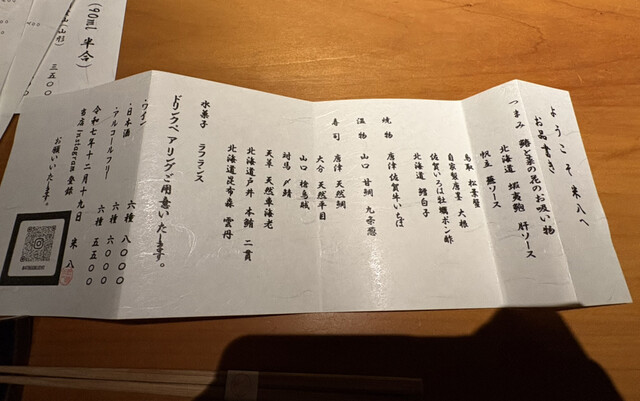 ようこそ 米八へ
お品書き
つまみ 蛤と菜の花のお吸い物
北海道 蝦夷鮑 肝ソース
帆立 蕪ソース
鳥取 松葉蟹
自家製唐墨 大根
佐賀いろは牡蠣ポン酢
北海道 鱈白子
焼物 唐津佐賀牛いちぼ
温物 山口 甘鯛 九条葱
寿司 唐津 天然鯛
大分 天然平目
山口 槍烏賊
対馬 〆鯖
天草 天然車海老
北海道戸井 本鮪 二貫
北海道昆布森 雲丹
水菓子 ラフランス
ドリンクペアリングご用意いたします。
・ワイン 六種 八〇〇〇
・日本酒 六種 六〇〇〇
・アルコールフリー 六種 五五〇〇
令和七年十二月十九日 米八
当店Instagram登録
お願いいたします。
(90ml 半合)
(山形) 三五〇〇